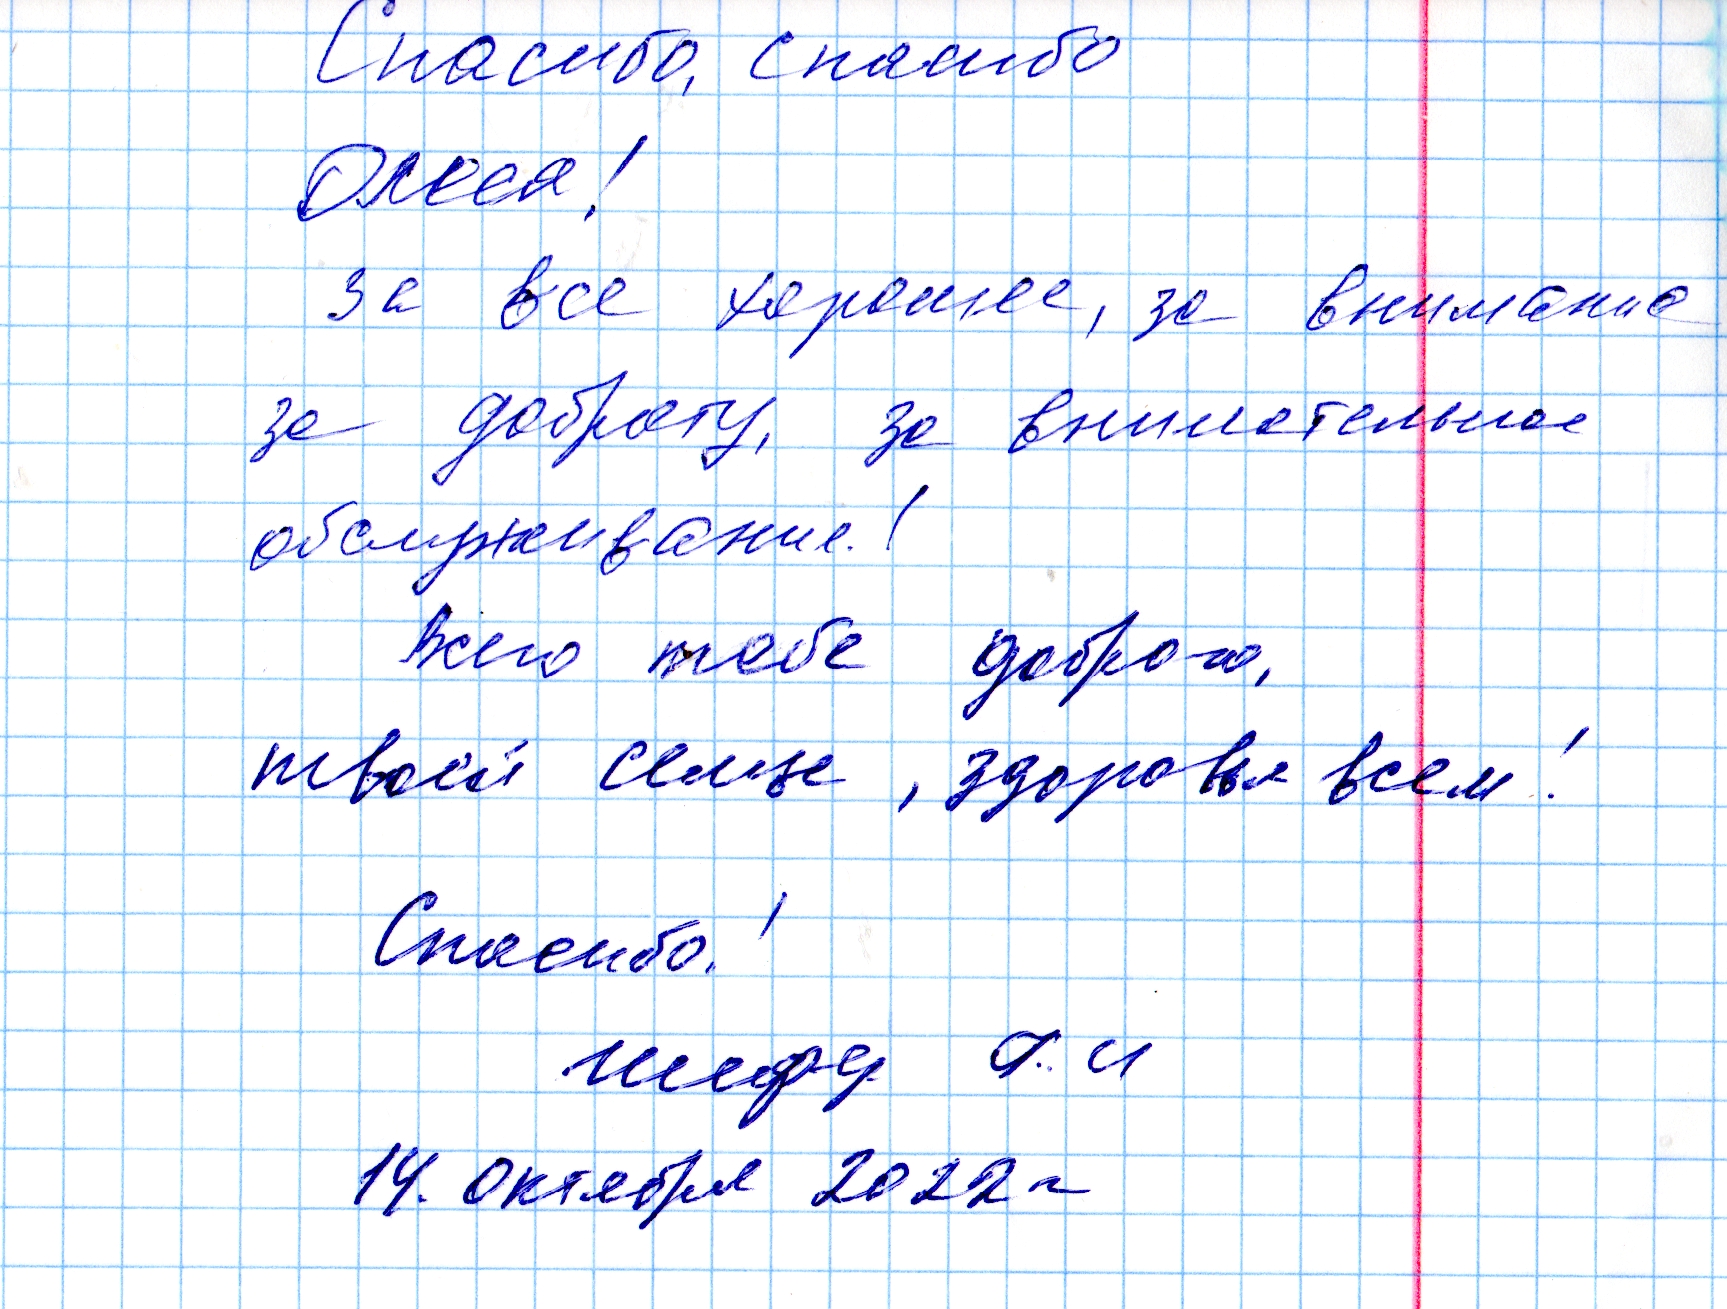 Спасибо, спасибо
Олеся!
за все хорошее, за внимание
за доброту, за внимательное
обслуживание!
Всего тебе доброго,
твоей семье, здоровья всем!
Спасибо!
14. октября 2022 г